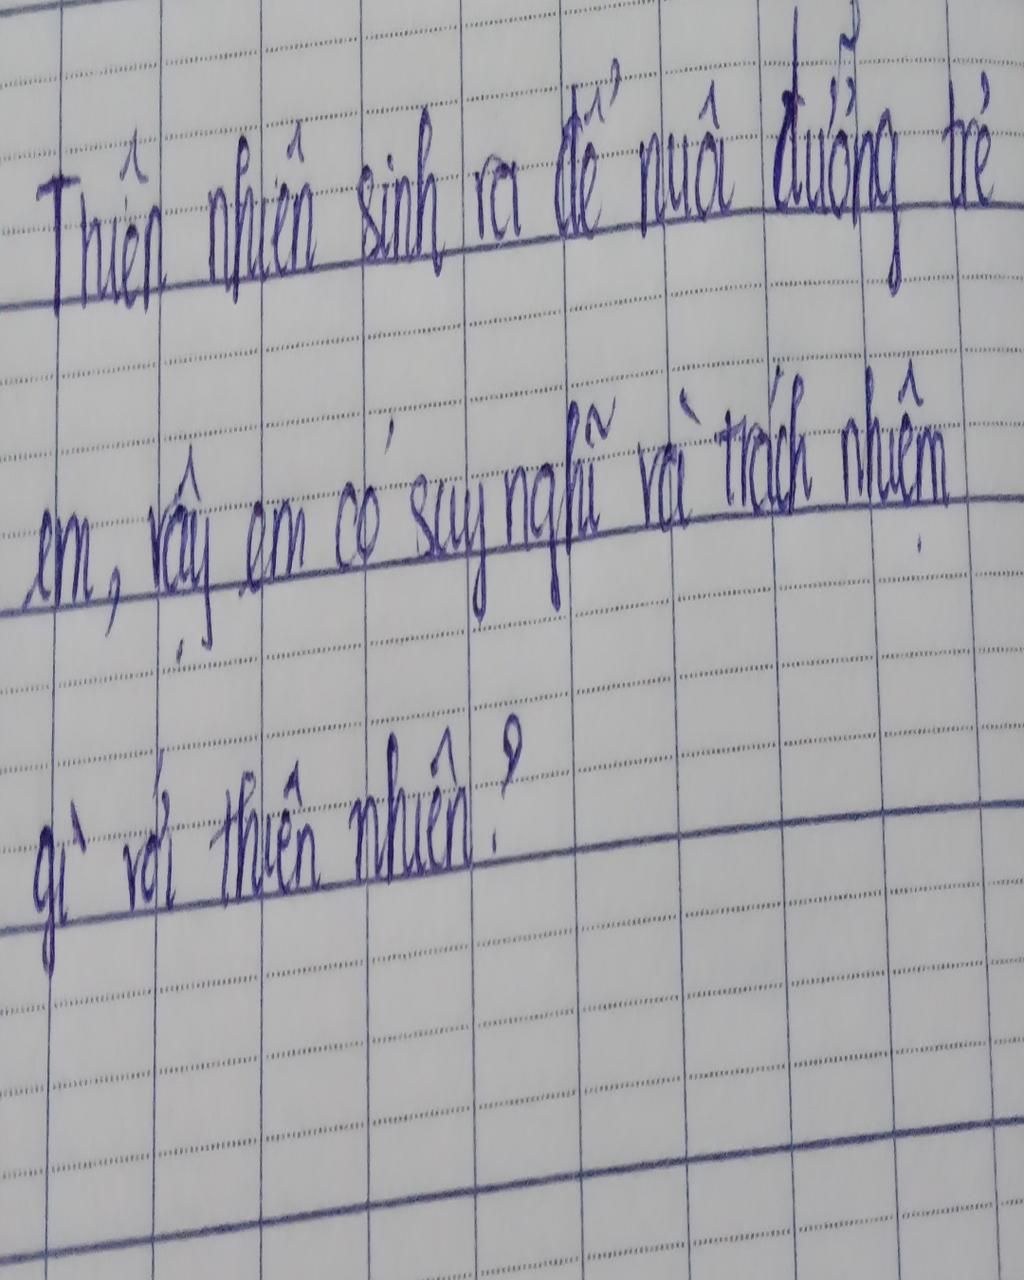 Thiên nhiên sinh ra để nuôi dưỡng trẻ
em, vậy em có suy nghĩ và trách nhiệm
gì với thiên nhiên?